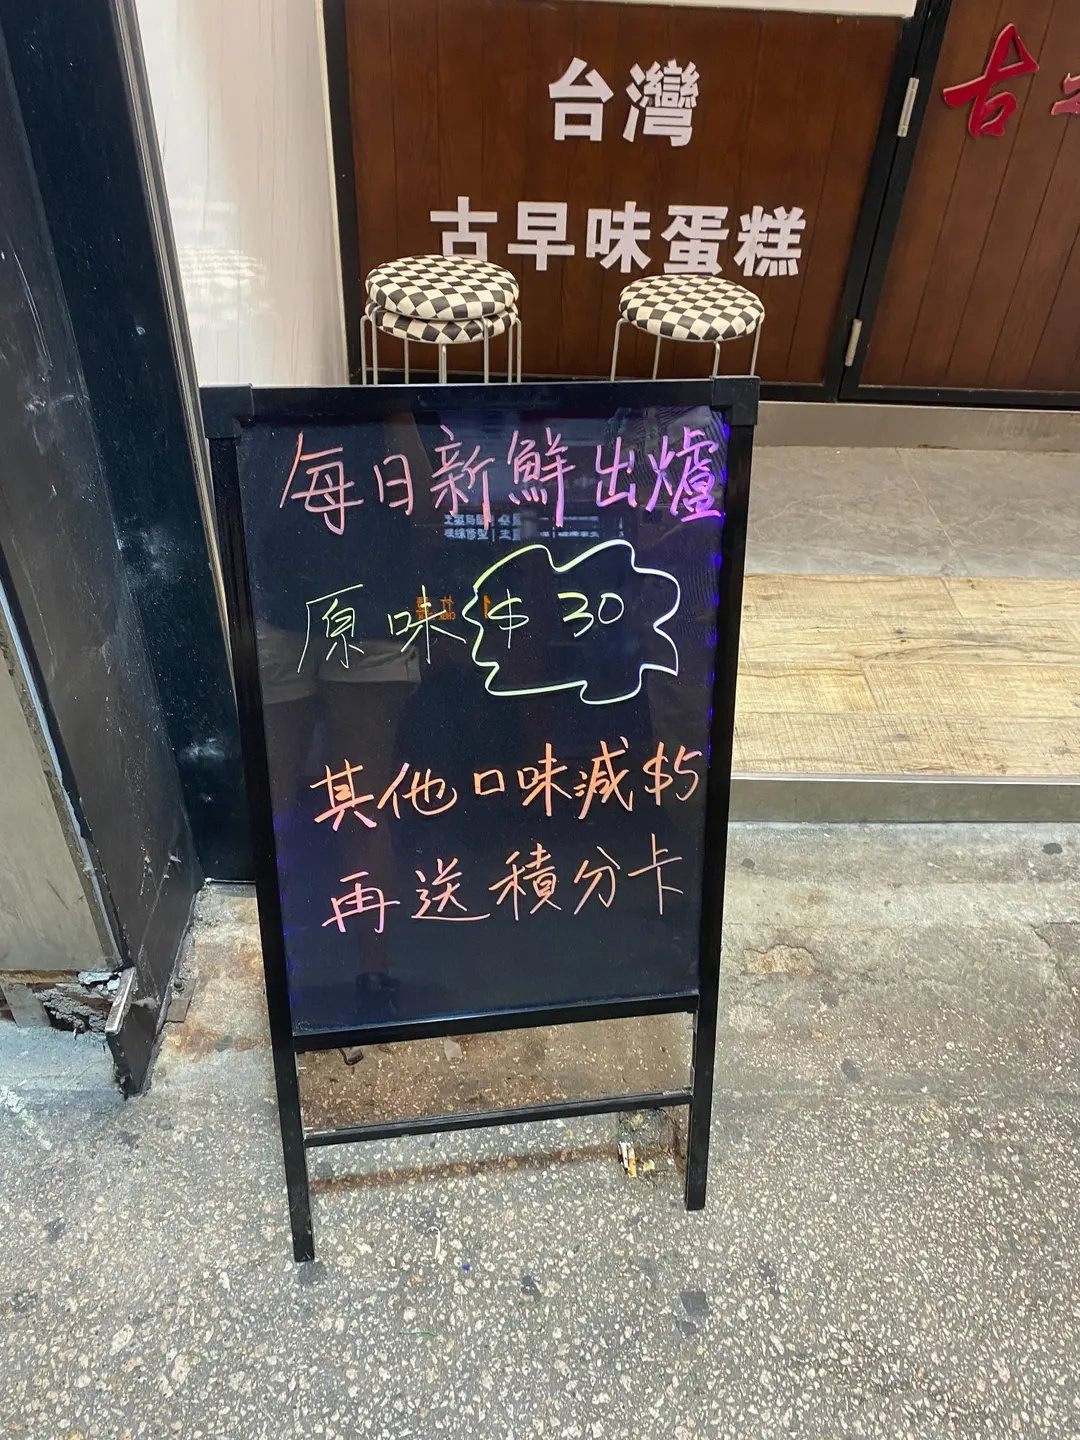 台灣
古早味蛋糕
古
每日新鮮出爐
原味 $30
其他口味減$5
再送積分卡